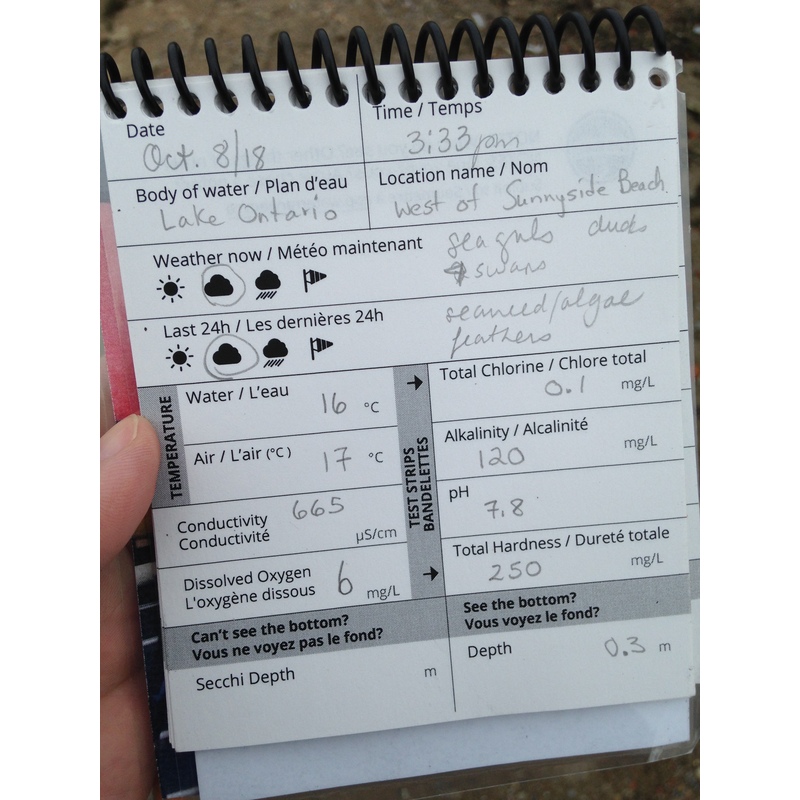 Date
Oct. 8/18
Time / Temps
3:33 pm
Body of water / Plan d'eau
Lake Ontario
Location name / Nom
West of Sunnyside Beach
Weather now / Météo maintenant
seaguls ducks
swans
Last 24h / Les dernières 24h
seaweed/algae
feathers
TEMPERATURE
Water / L'eau
16 °C
Air / L'air (°C)
17 °C
Conductivity
Conductivité
665
µS/cm
Dissolved Oxygen
L'oxygène dissous
6 mg/L
TEST STRIPS
BANDELETTES
Total Chlorine / Chlore total
0.1 mg/L
Alkalinity / Alcalinité
120 mg/L
pH
7.8
Total Hardness / Dureté totale
250 mg/L
Can't see the bottom?
Vous ne voyez pas le fond?
Secchi Depth m
See the bottom?
Vous voyez le fond?
Depth 0.3 m